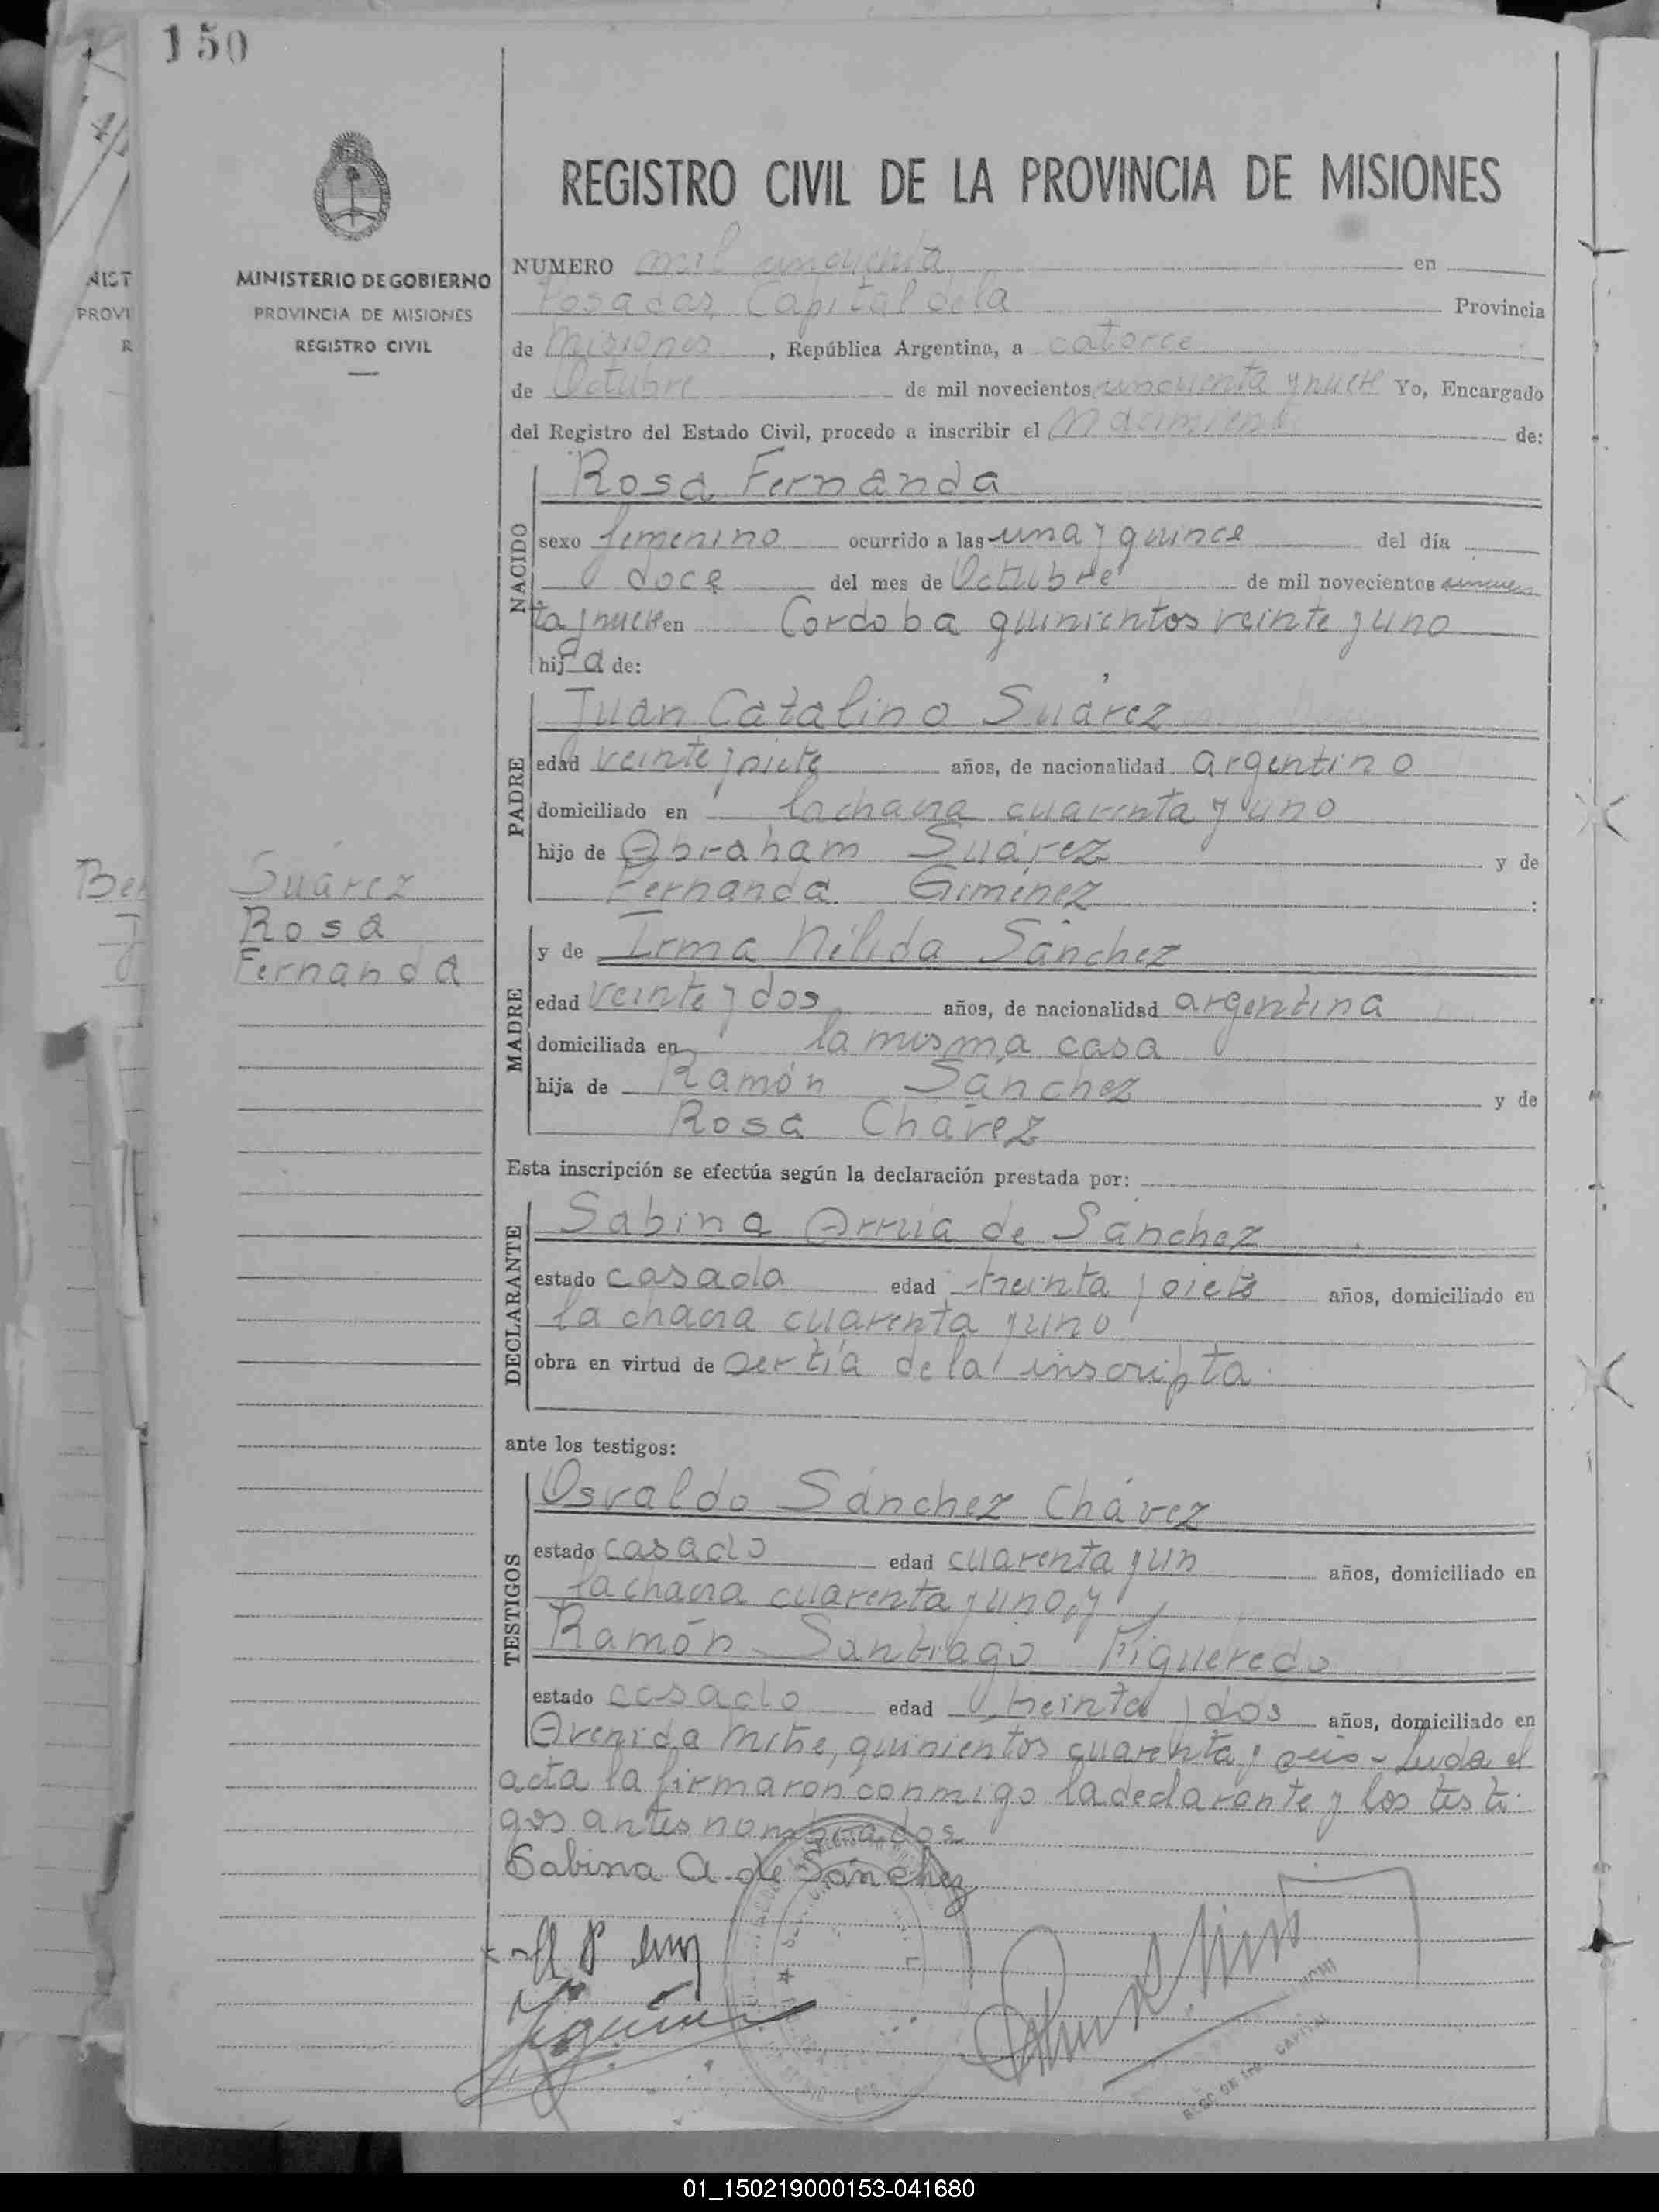 150
REGISTRO CIVIL DE LA PROVINCIA DE MISIONES
MINISTERIO DE GOBIERNO
PROVINCIA DE MISIONES
REGISTRO CIVIL
NIST
PROVI
R
NUMERO mil cincuenta en
Posadas, Capital de la Provincia
de Misiones, República Argentina, a catorce
de Octubre de mil novecientos cincuenta y nueve Yo, Encargado
del Registro del Estado Civil, procedo a inscribir el Nacimiento de:
NACIDO
Rosa Fernanda
sexo femenino ocurrido a las una y quince del día
doce del mes de Octubre de mil novecientos cincuen
ta y nueve en Cordoba quinientos veinte y uno
hija de:
PADRE
Juan Catalino Suárez
edad veinte y siete años, de nacionalidad argentino
domiciliado en la chacra cuarenta y uno
hijo de Abraham Suárez y de
Fernanda Giménez :
Ber
Suárez
Rosa
Fernanda
MADRE
y de Irma Nélida Sánchez
edad veinte y dos años, de nacionalidad argentina
domiciliada en la misma casa
hija de Ramón Sánchez y de
Rosa Chávez
Esta inscripción se efectúa según la declaración prestada por:
DECLARANTE
Sabina Arrúa de Sánchez
estado casada edad treinta y siete años, domiciliado en
la chacra cuarenta y uno
obra en virtud de ser tía de la inscripta
ante los testigos:
TESTIGOS
Osvaldo Sánchez Chávez
estado casado edad cuarenta y un años, domiciliado en
la chacra cuarenta y uno, y
Ramón Santiago Figueredo
estado casado edad treinta y dos años, domiciliado en
Avenida Mitre, quinientos cuarenta y seis - Leida el
acta la firmaron conmigo la declarante y los testi
gos antes nombrados
Sabina A. de Sánchez
CAPITAL
01_150219000153-041680